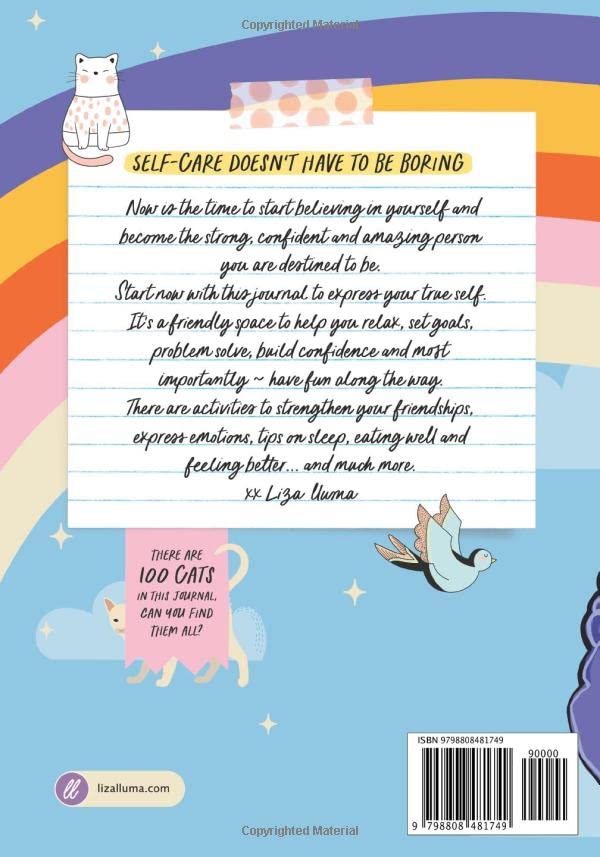 Copyrighted Material
SELF-CARE DOESN'T HAVE TO BE BORING
Now is the time to start believing in yourself and
become the strong, confident and amazing person
you are destined to be.
Start now with this journal to express your true self.
It's a friendly space to help you relax, set goals,
problem solve, build confidence and most
importantly ~ have fun along the way.
There are activities to strengthen your friendships,
express emotions, tips on sleep, eating well and
feeling better... and much more.
xx Liza lluma
THERE ARE
100 CATS
IN THIS JOURNAL,
CAN YOU FIND
THEM ALL?
ISBN 9798808481749
90000
9 798808 481749
ll lizalluma.com
Copyrighted Material